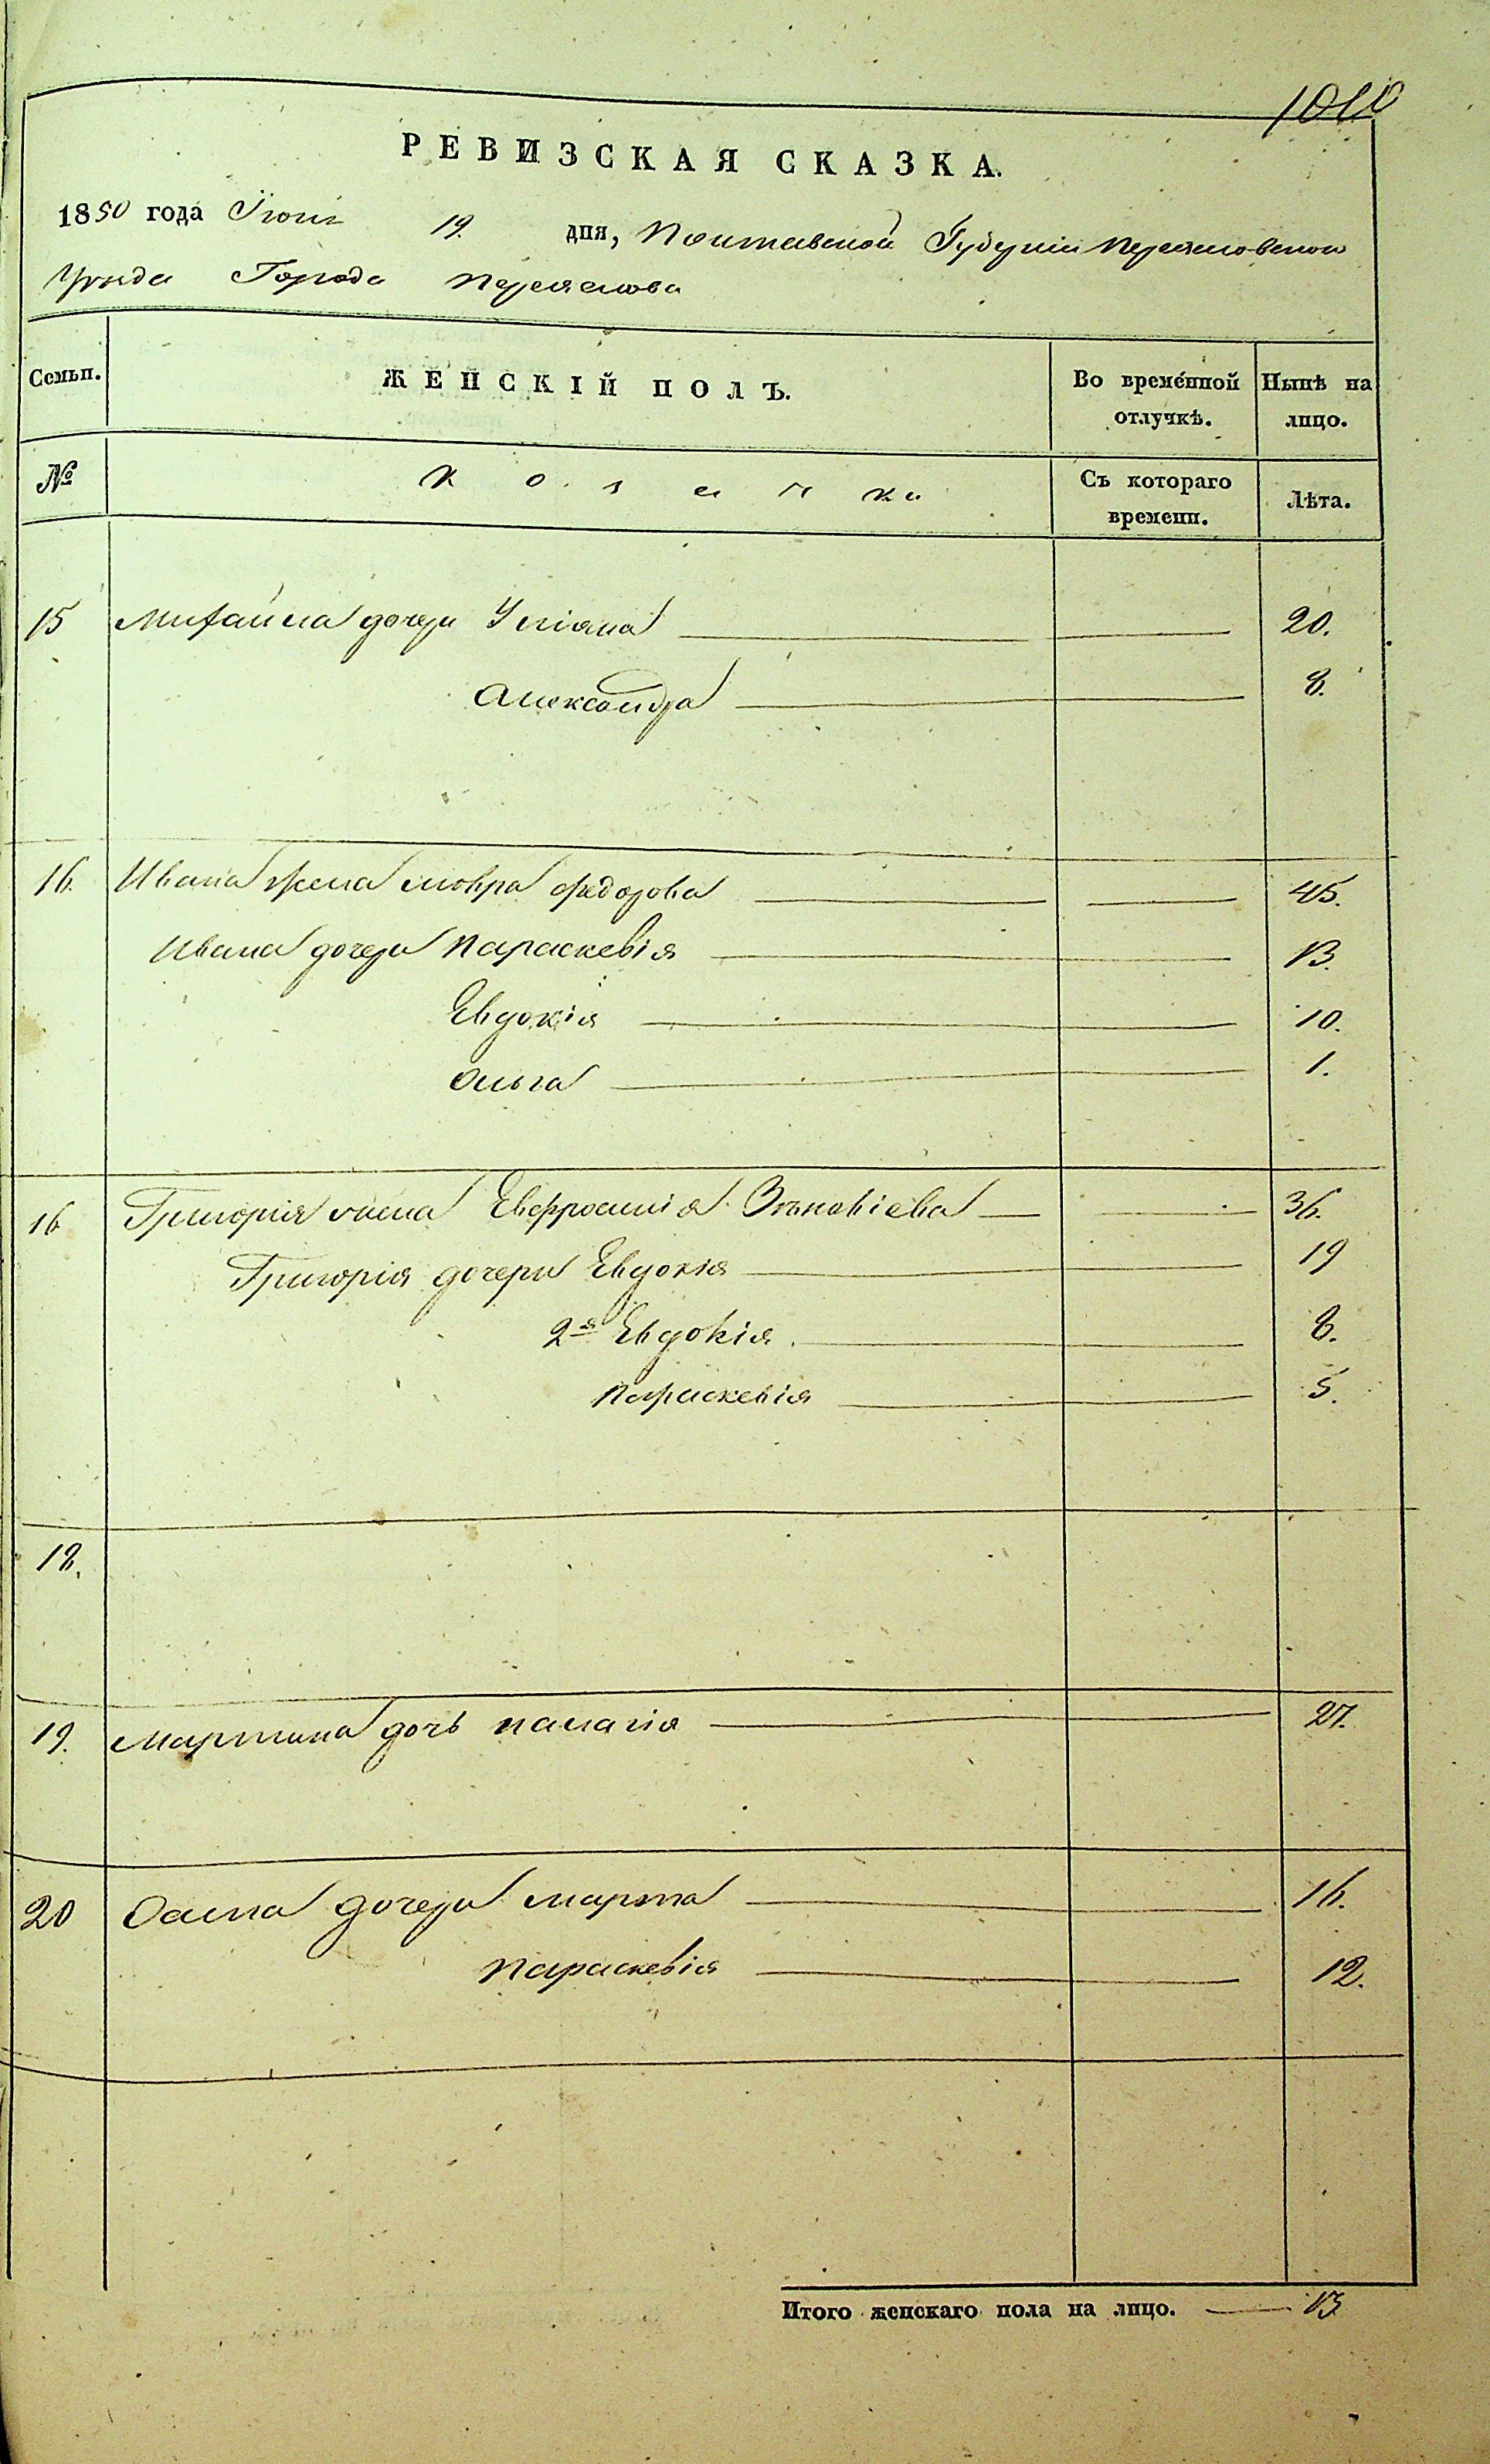 1010
РЕВИЗСКАЯ СКАЗКА.
1850 года Іюня 19. дня, Полтавской Губерніи Переяловской
Уезда Города Переяслова
Семьи. ЖЕНСКІЙ ПОЛЪ. Во временной отлучкѣ. Нынѣ на лицо.
№ Козачки Съ котораго времени. Лѣта.
15 Михайла дочери Уліяна 20.
Александра 8.
16. Ивана жена Мовра Федорова 45.
Ивана дочери Параскевія 13.
Евдокія 10.
Ольга 1.
16 Григорія жена Евфросинія Зѣновіева 36.
Григорія дочери Евдокія 19
2я Евдокія. 8.
Параскевія 5.
18.
19. Мартина дочь Палагія 27.
20 Осипа дочери Марфа 16.
Параскевія 12.
Итого женскаго пола на лицо. 13